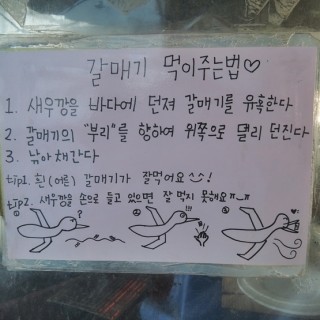 갈매기 먹이주는법♡
1. 새우깡을 바다에 던져 갈매기를 유혹한다
2. 갈매기의 "부리"를 향하여 위쪽으로 멀리 던진다
3. 낚아채간다
tip1. 흰(어른) 갈매기가 잘먹어요^^!
tip2. 새우깡을 손으로 들고 있으면 잘 먹지 못해요ㅠ_ㅠ
① ? ② !!! ③ ♥